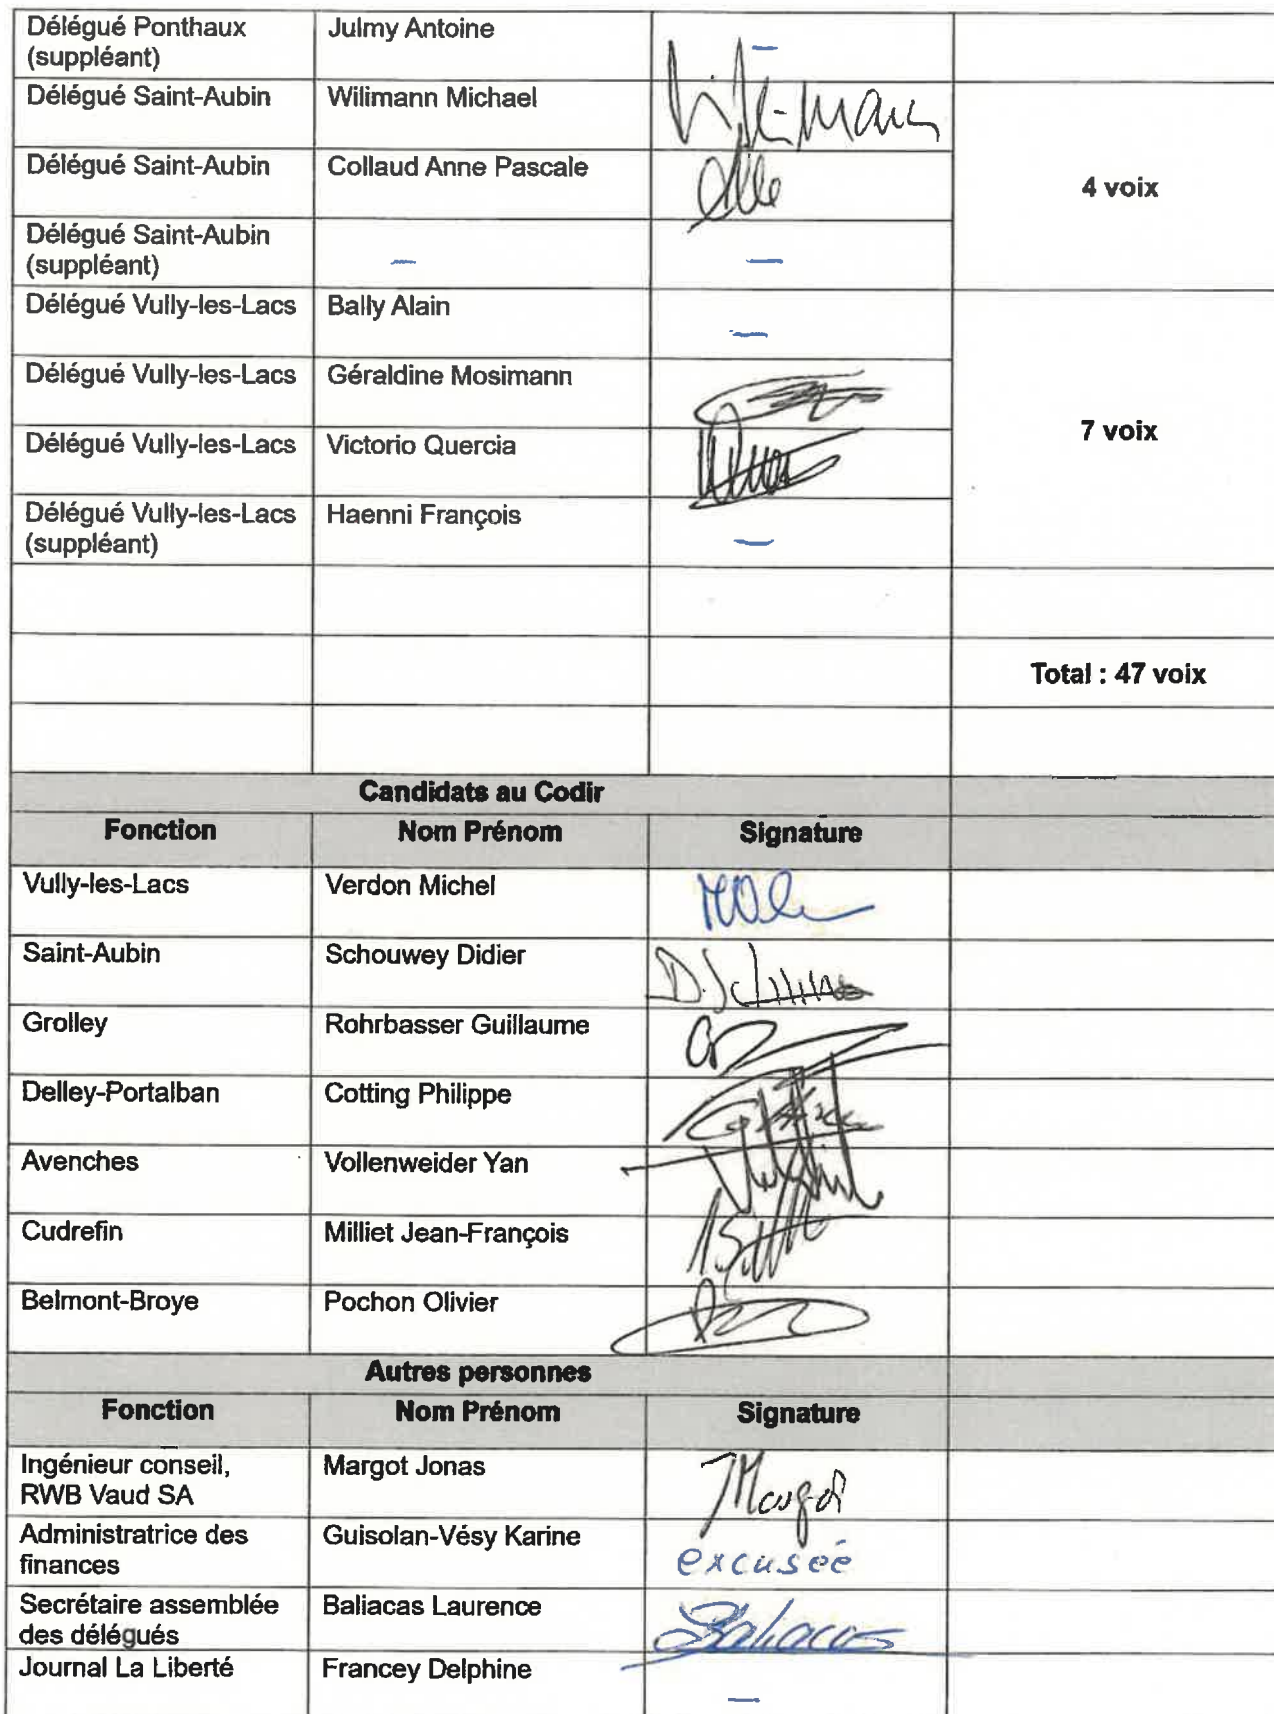 Délégué Ponthaux
(suppléant)
Julmy Antoine
–
Délégué Saint-Aubin
Wilimann Michael
Délégué Saint-Aubin
Collaud Anne Pascale
4 voix
Délégué Saint-Aubin
(suppléant)
–
–
Délégué Vully-les-Lacs
Bally Alain
–
Délégué Vully-les-Lacs
Géraldine Mosimann
Délégué Vully-les-Lacs
Victorio Quercia
7 voix
Délégué Vully-les-Lacs
(suppléant)
Haenni François
–
Total : 47 voix
Candidats au Codir
Fonction
Nom Prénom
Signature
Vully-les-Lacs
Verdon Michel
Saint-Aubin
Schouwey Didier
Grolley
Rohrbasser Guillaume
Delley-Portalban
Cotting Philippe
Avenches
Vollenweider Yan
Cudrefin
Milliet Jean-François
Belmont-Broye
Pochon Olivier
Autres personnes
Fonction
Nom Prénom
Signature
Ingénieur conseil,
RWB Vaud SA
Margot Jonas
JMargot
Administratrice des
finances
Guisolan-Vésy Karine
excusée
Secrétaire assemblée
des délégués
Baliacas Laurence
Baliacas
Journal La Liberté
Francey Delphine
–